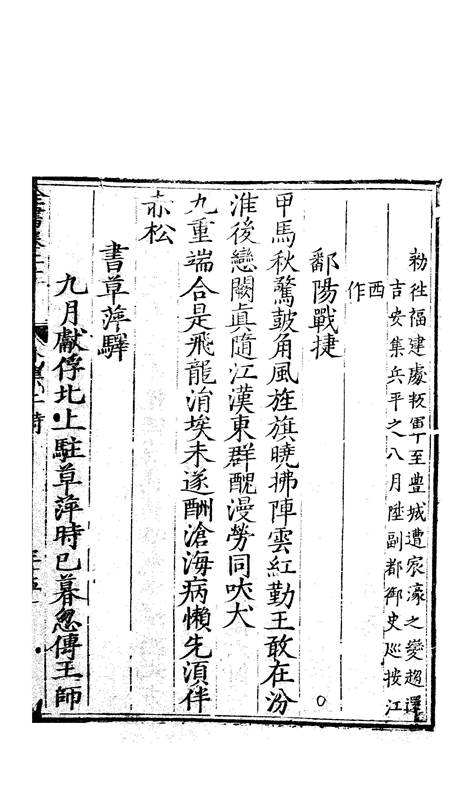 勑徃福建處叛軍至豊城遭宸濠之變趨還
吉安集兵平之八月陞副都御史巡撫江
西
作
鄱陽戰捷
甲馬秋驚鼓角風旌旗曉拂陣雲紅勤王敢在汾
淮後戀闕真隨江漢東群醜漫勞同吠犬
九重端合是飛龍涓埃未遂酬滄海病懶先湏伴
赤松
書草萍驛
九月獻俘北上駐草萍時已暮忽傳王師